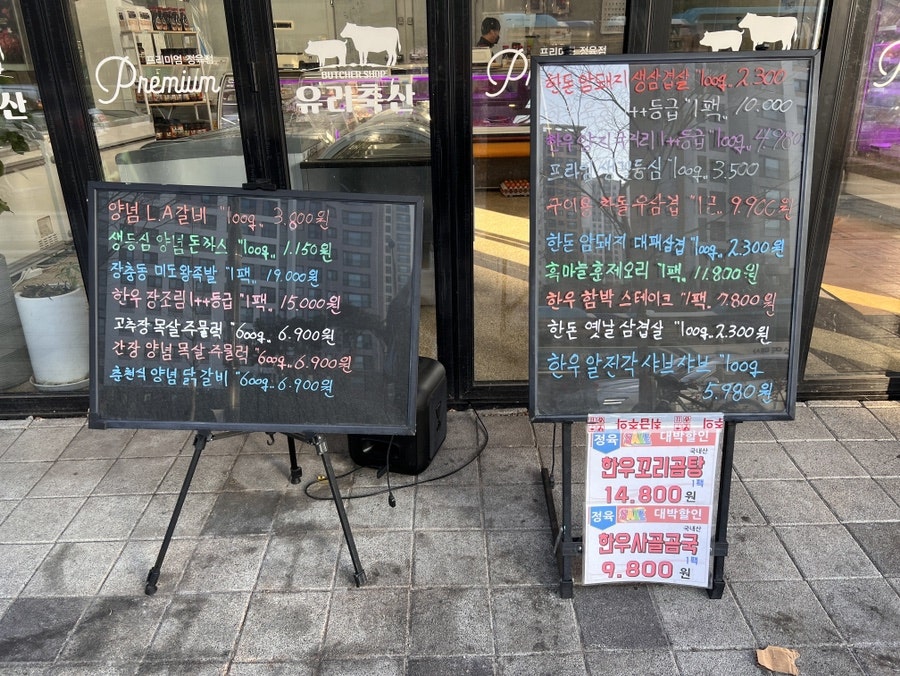 프리미엄 정육점
Premium
BUTCHER SHOP
유리축산
프리미엄 정육점
산
양념 L.A갈비 "100g.. 3.800원
생등심 양념 돈까스 "100g.. 1.150원
장충동 미도왕족발 "1팩.. 19.000원
한우 장조림 1++등급 "1팩.. 15.000원
고추장 목살 주물럭 "600g.. 6.900원
간장 양념 목살 주물럭 "600g.. 6.900원
춘천식 양념 닭갈비 "600g.. 6.900원
한돈 암돼지 생삼겹살 "100g.. 2.300
1++등급 "1팩.. 10.000
한우 1++등급 "100g.. 4.980
등심 "100g.. 3.500
구이용 우삼겹 "1근.. 9.900원
한돈 암돼지 대패삼겹 "100g.. 2.300원
흑마늘 훈제오리 "1팩.. 11.800원
한우 함박 스테이크 "1팩.. 7.800원
한돈 옛날 삼겹살 "100g.. 2.300원
한우 앞전각 샤브샤브 "100g
5.980원
정육 SALE 대박할인
국내산
한우꼬리곰탕
1팩
14.800원
정육 SALE 대박할인
국내산
한우사골곰국
1팩
9.800원